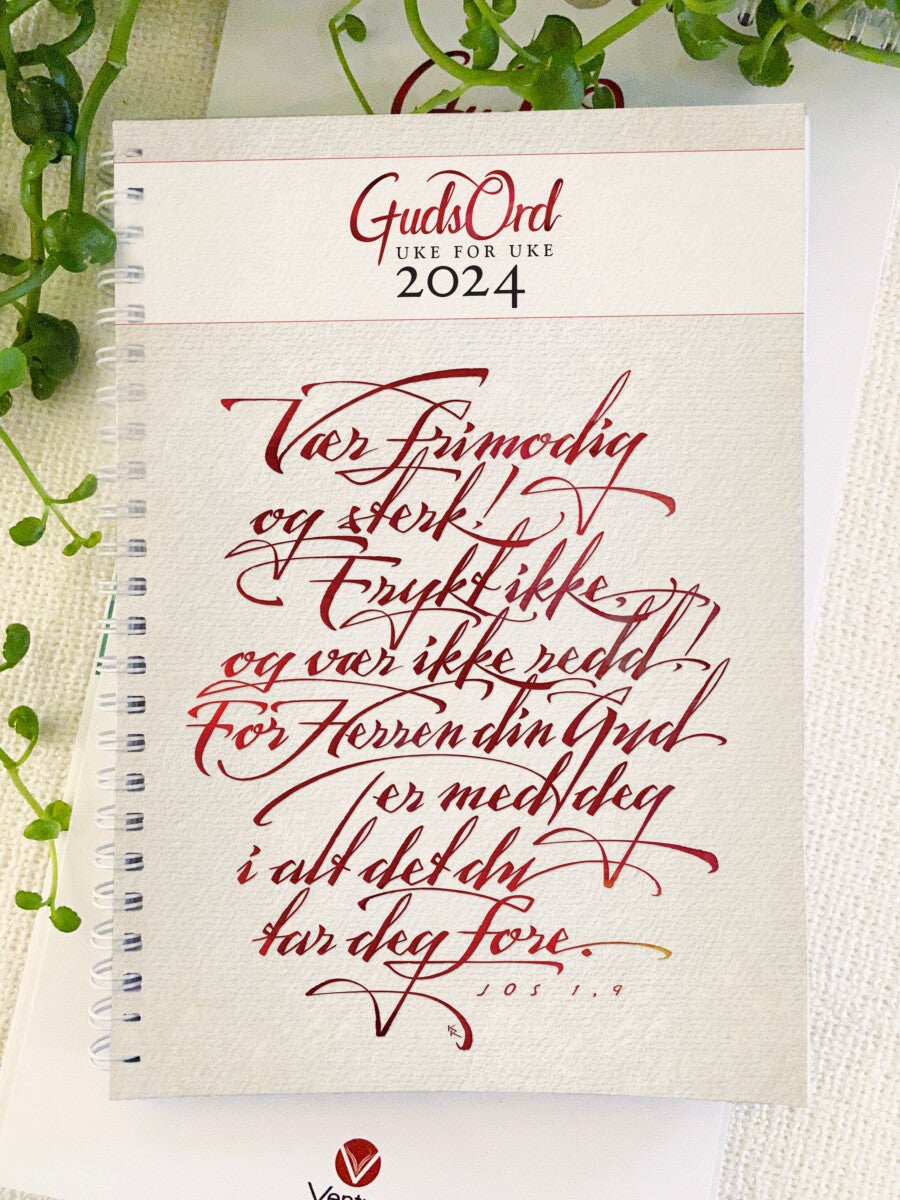 GudsOrd
UKE FOR UKE
2024
Vær frimodig
og sterk!
Frykt ikke,
og vær ikke redd!
For Herren din Gud
er med deg
i alt det du
tar deg fore.
JOS 1,9